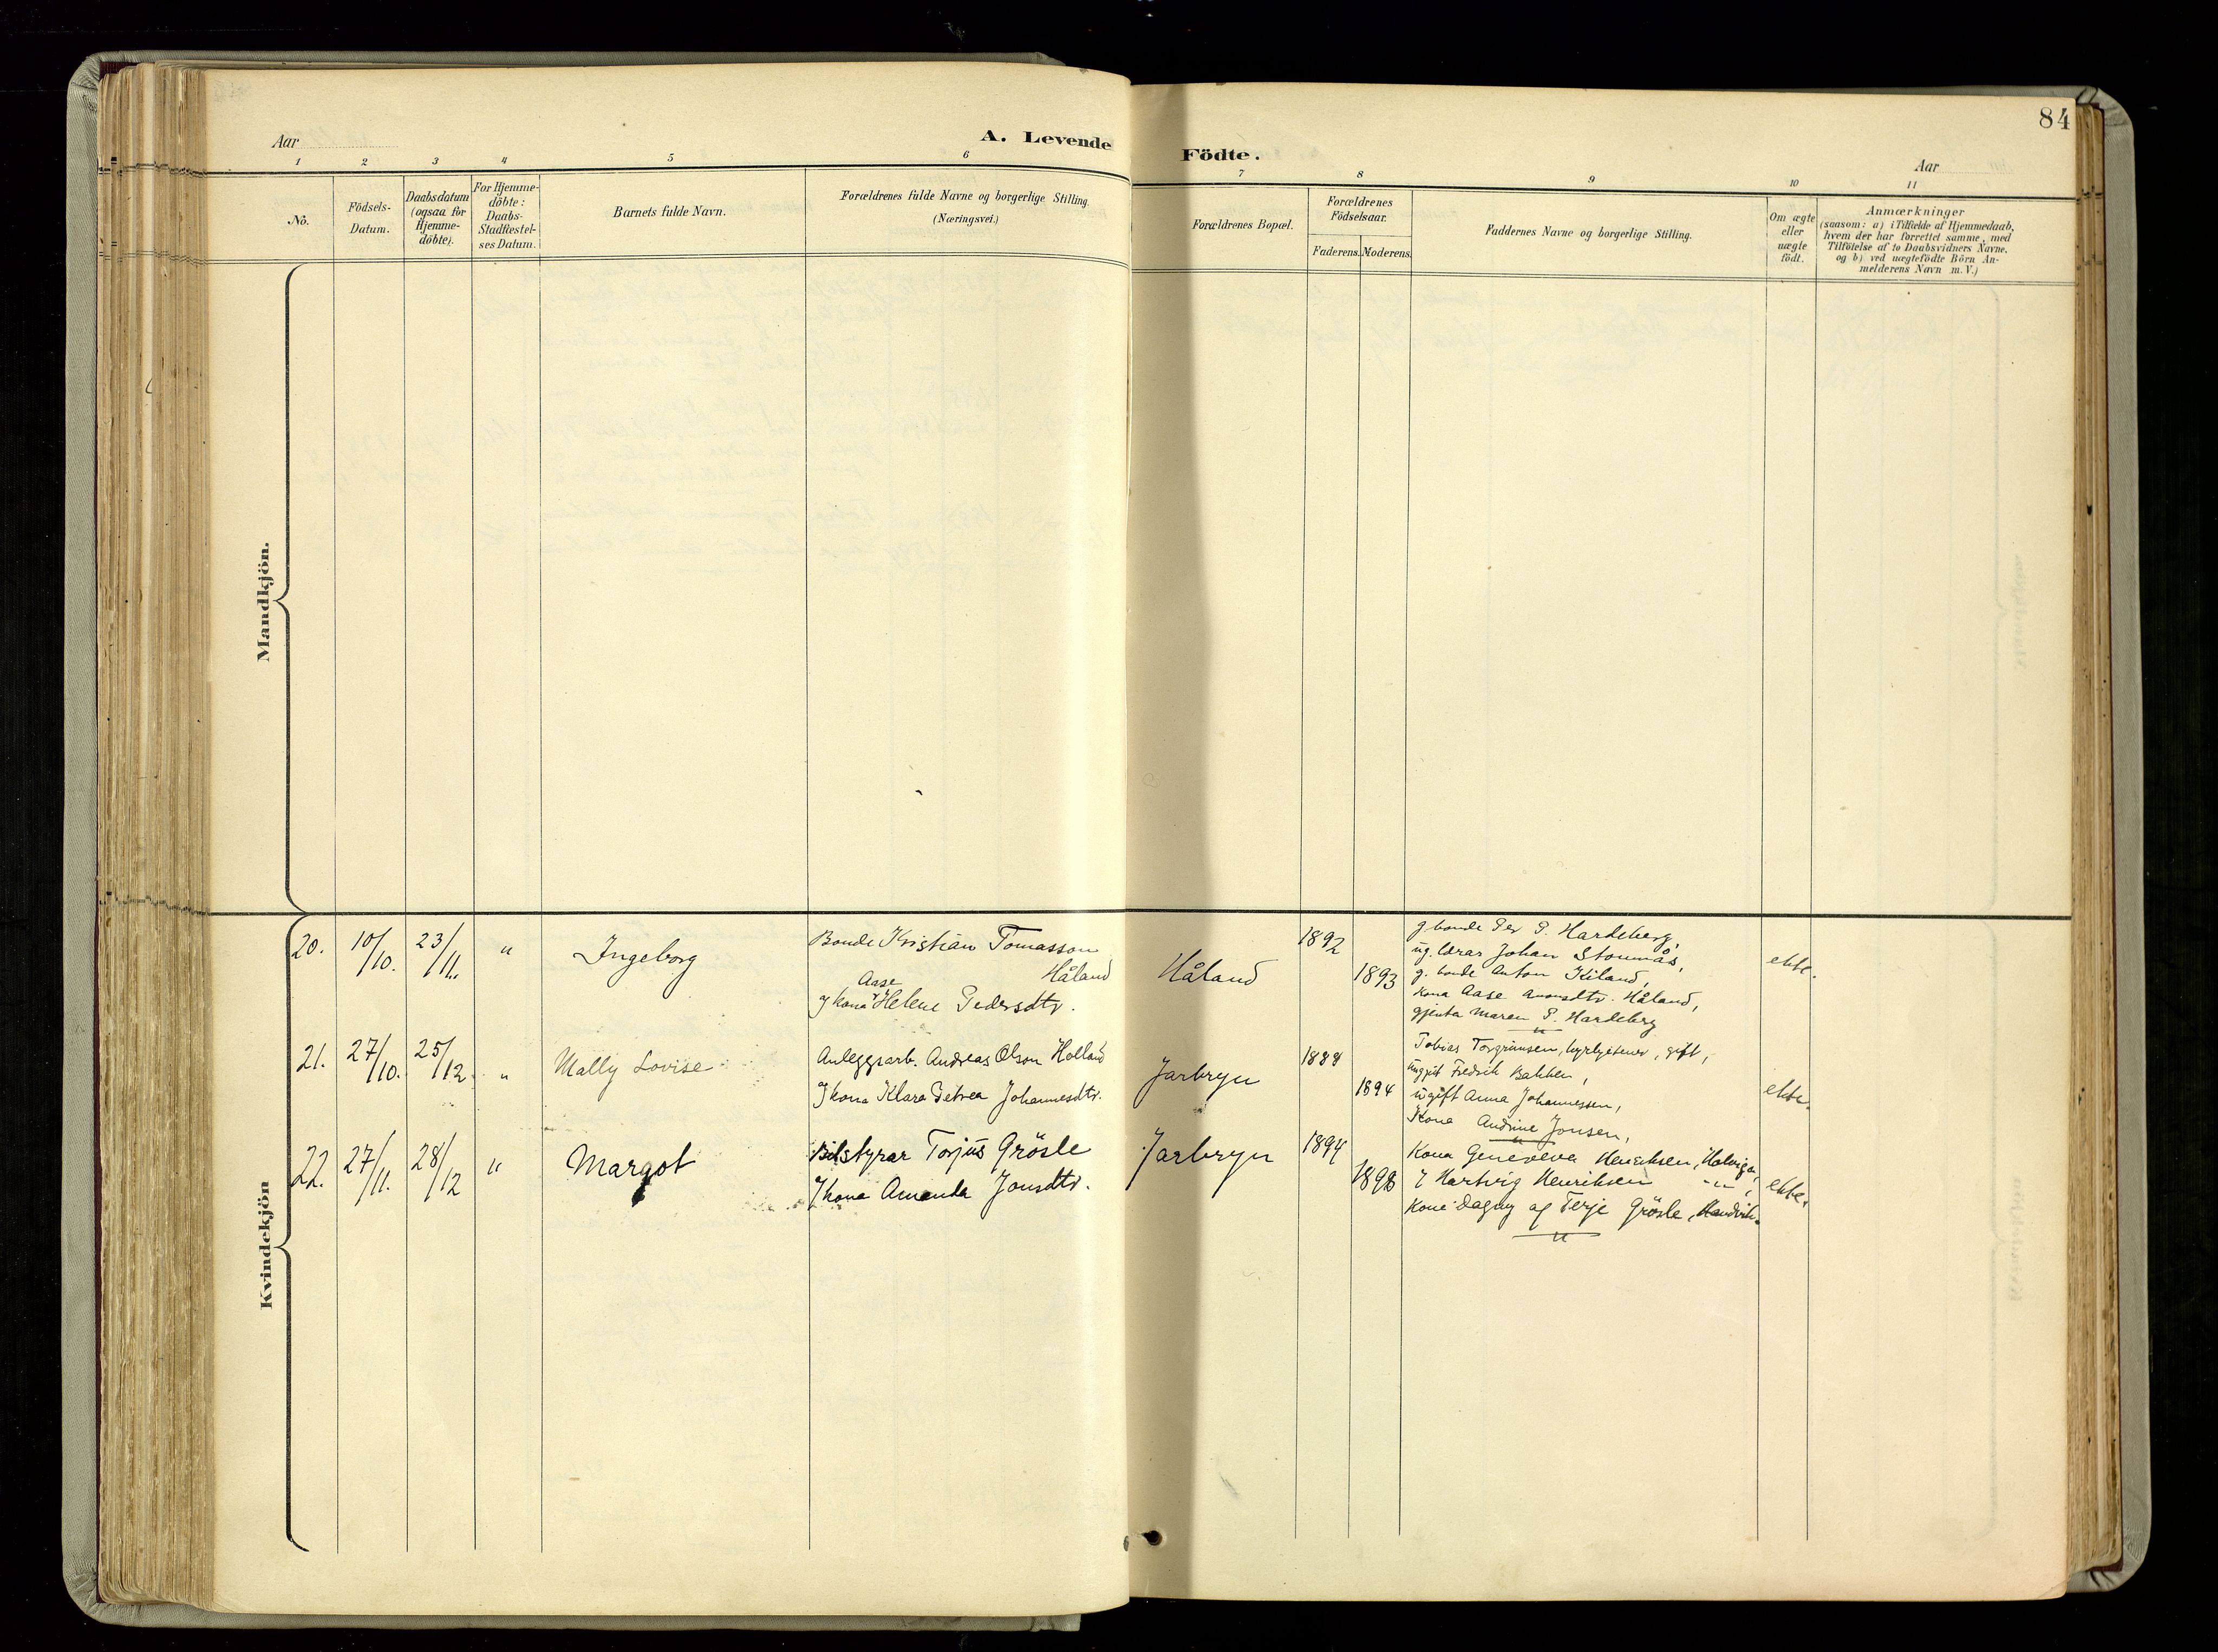 84
A. Levende Födte.
Aar
Aar
1 2 3 4 5 6 7 8 9 10 11
No.
Födsels-
Datum.
Daabsdatum
(ogsaa for
Hjemme-
döbte).
For Hjemme-
döbte:
Daabs-
Stadfæstel-
ses Datum.
Barnets fulde Navn.
Forældrenes fulde Navne og borgerlige Stilling.
(Næringsvei.)
Forældrenes Bopæl.
Forældrenes
Födselsaar.
Faderens. Moderens.
Faddernes Navne og borgerlige Stilling.
Om ægte
eller
uægte
födt.
Anmærkninger
(saasom: a) i Tilfælde af Hjemmedaab,
hvem der har forrettet samme, med
Tilföielse af to Daabsvidners Navne,
og b) ved uægtefödte Börn An-
melderens Navn m. V.)
Mandkjön.
Kvindekjön
20. 10/10. 23/11. " Ingeborg
Bonde Kristian Tomasson
Håland
Aase
og kona Helene Pedersdtr.
Håland
1892
1893
g. bonde Per P. Hardeberg,
ug. lærar Johan Stoumås,
g. bonde Anton Kiland,
Kona Aase Håland,
gjenta Maren P. Hardeberg
"
ekte.
21. 27/10. 25/12. " Mally Lovise
Anleggsarb. Andreas Olson Holland
og kona Klara Petrea Johannesdtr.
Jarbryn
1888
1894
Tobias Torgrimsen, gift,
ungift Fredrik Bakken,
ugift Anna Johannessen,
Kona Andrine Jonsen,
"
ekte.
22. 27/11. 28/12 " Margot
Bilstyrar Torjus Grösle
og kona Amanda Jonsdtr.
Jarbryn
1894
1898
Kona Geneveva Henriksen,
og Hartvig Henriksen - " -,
Kone Dagny og Terje Grösle,
"
ekte.